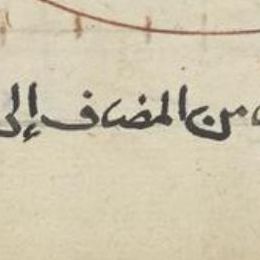 من المضاف إلى